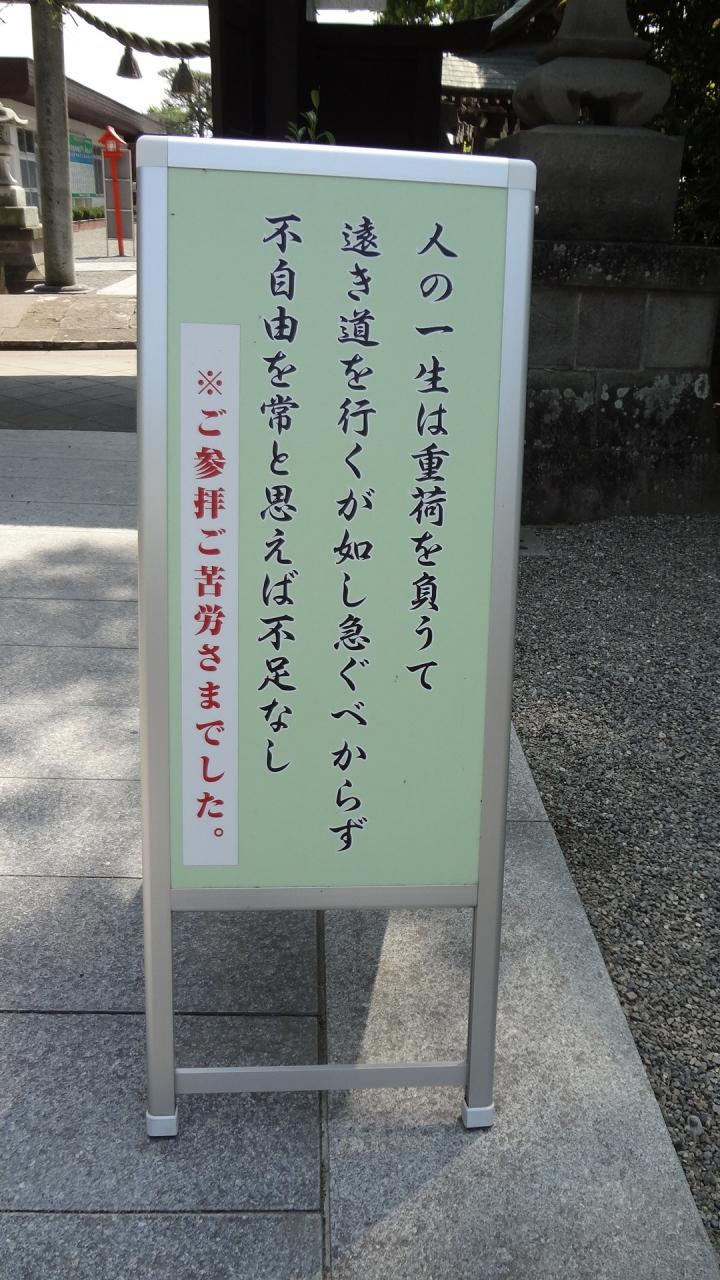 人の一生は重荷を負うて
遠き道を行くが如し急ぐべからず
不自由を常と思えば不足なし
※ご参拝ご苦労さまでした。